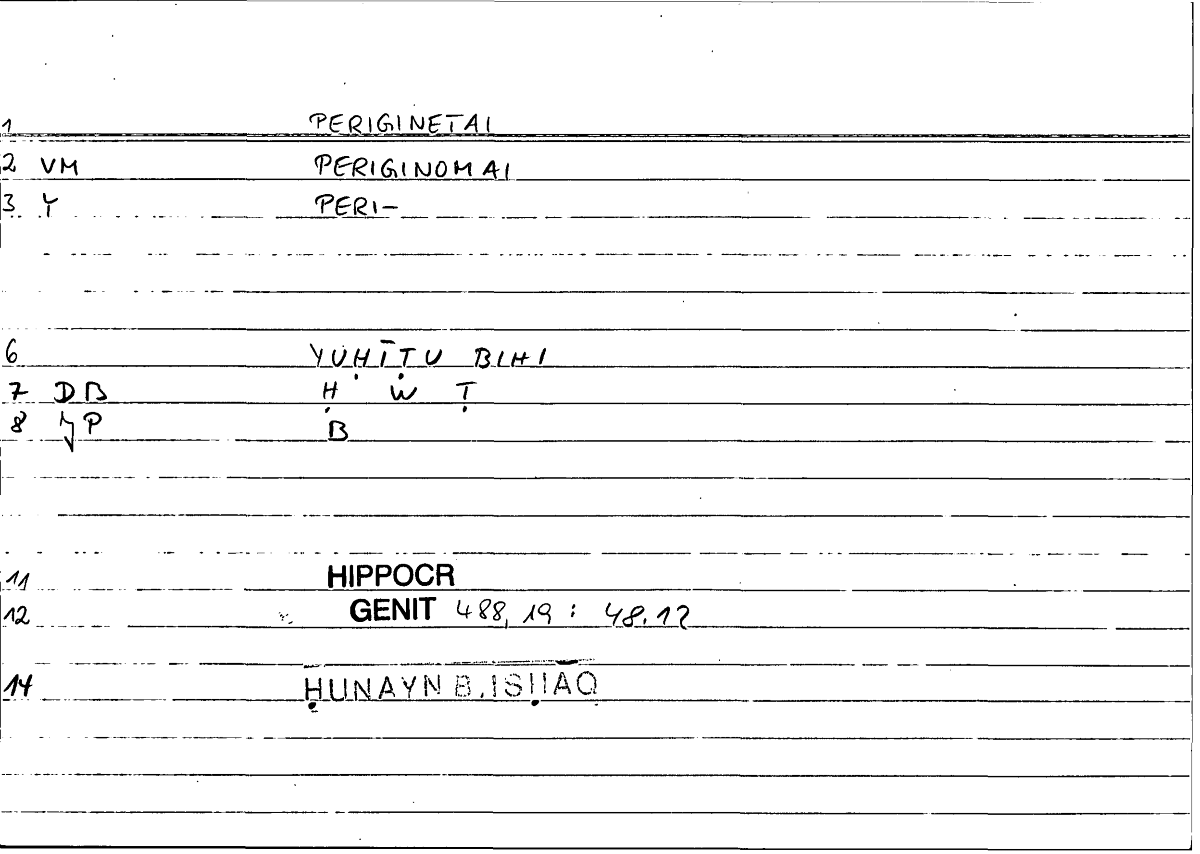 1 PERIGINETAI
2 VM PERIGINOMAI
3 Y PERI-
6 YUḤĪṬU BIHI
7 DB Ḥ W Ṭ
8 P B
11 HIPPOCR
12 GENIT 488,19 : 48.12
14 ḤUNAYN B. ISḤĀQ